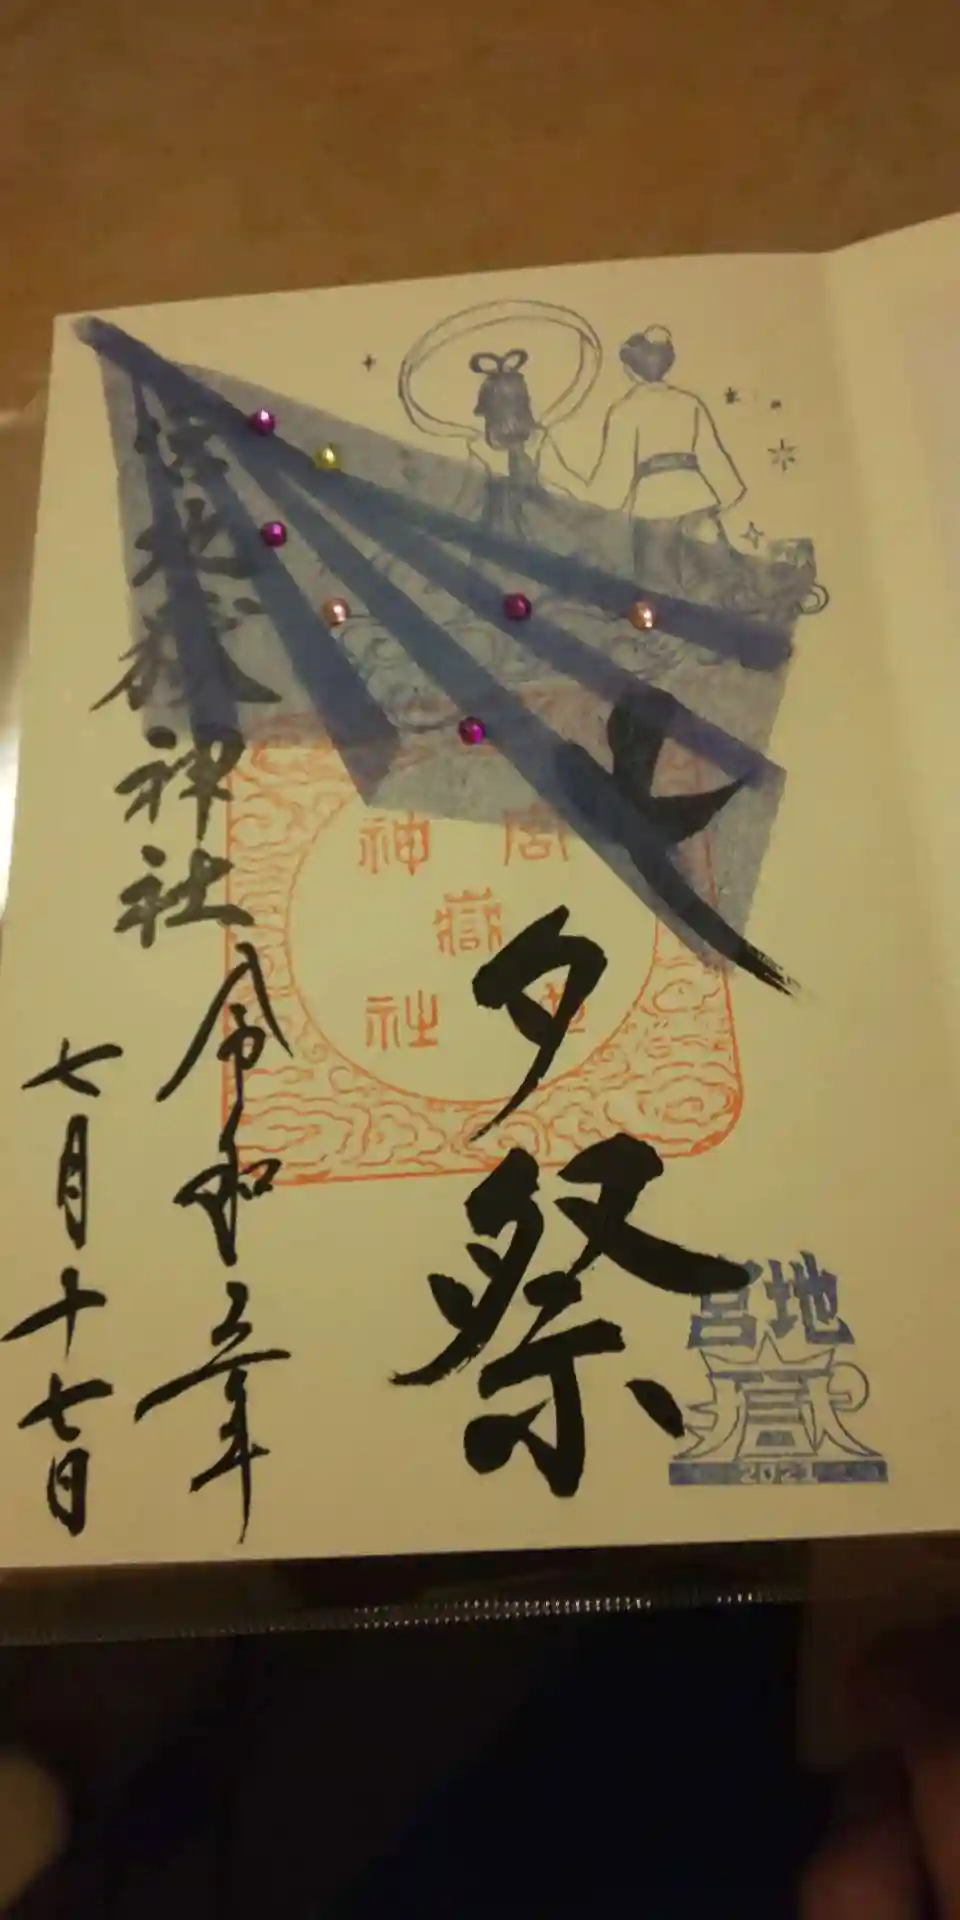 七夕祭
宮地嶽神社
令和三年
七月十七日
宮地
嶽
神社
宮地
嶽
2021